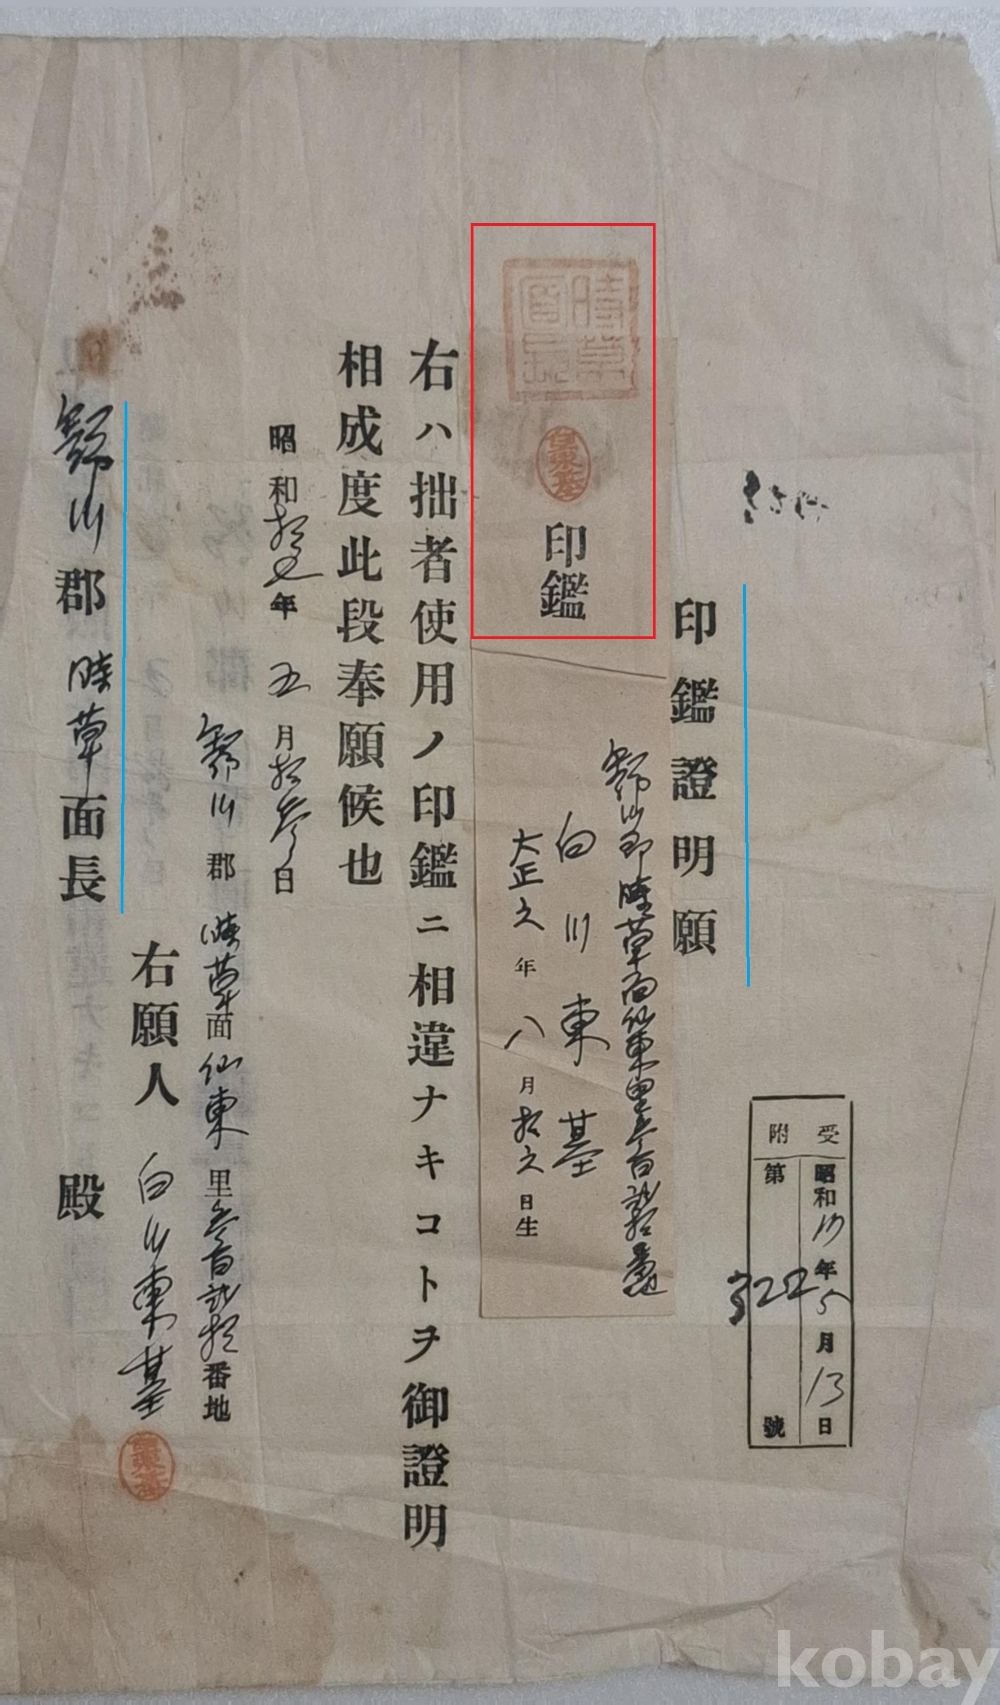 受附
昭和17年5月13日
第322號
印鑑證明願
舒川郡時草面仙東里參百貳拾番地
白川東基
大正六年八月拾六日生
時草面長
印鑑
右ハ拙者使用ノ印鑑ニ相違ナキコトヲ御證明
相成度此段奉願候也
昭和拾七年五月拾參日
舒川郡時草面仙東里參百貳拾番地
右願人 白川東基
舒川郡時草面長 殿
kobay